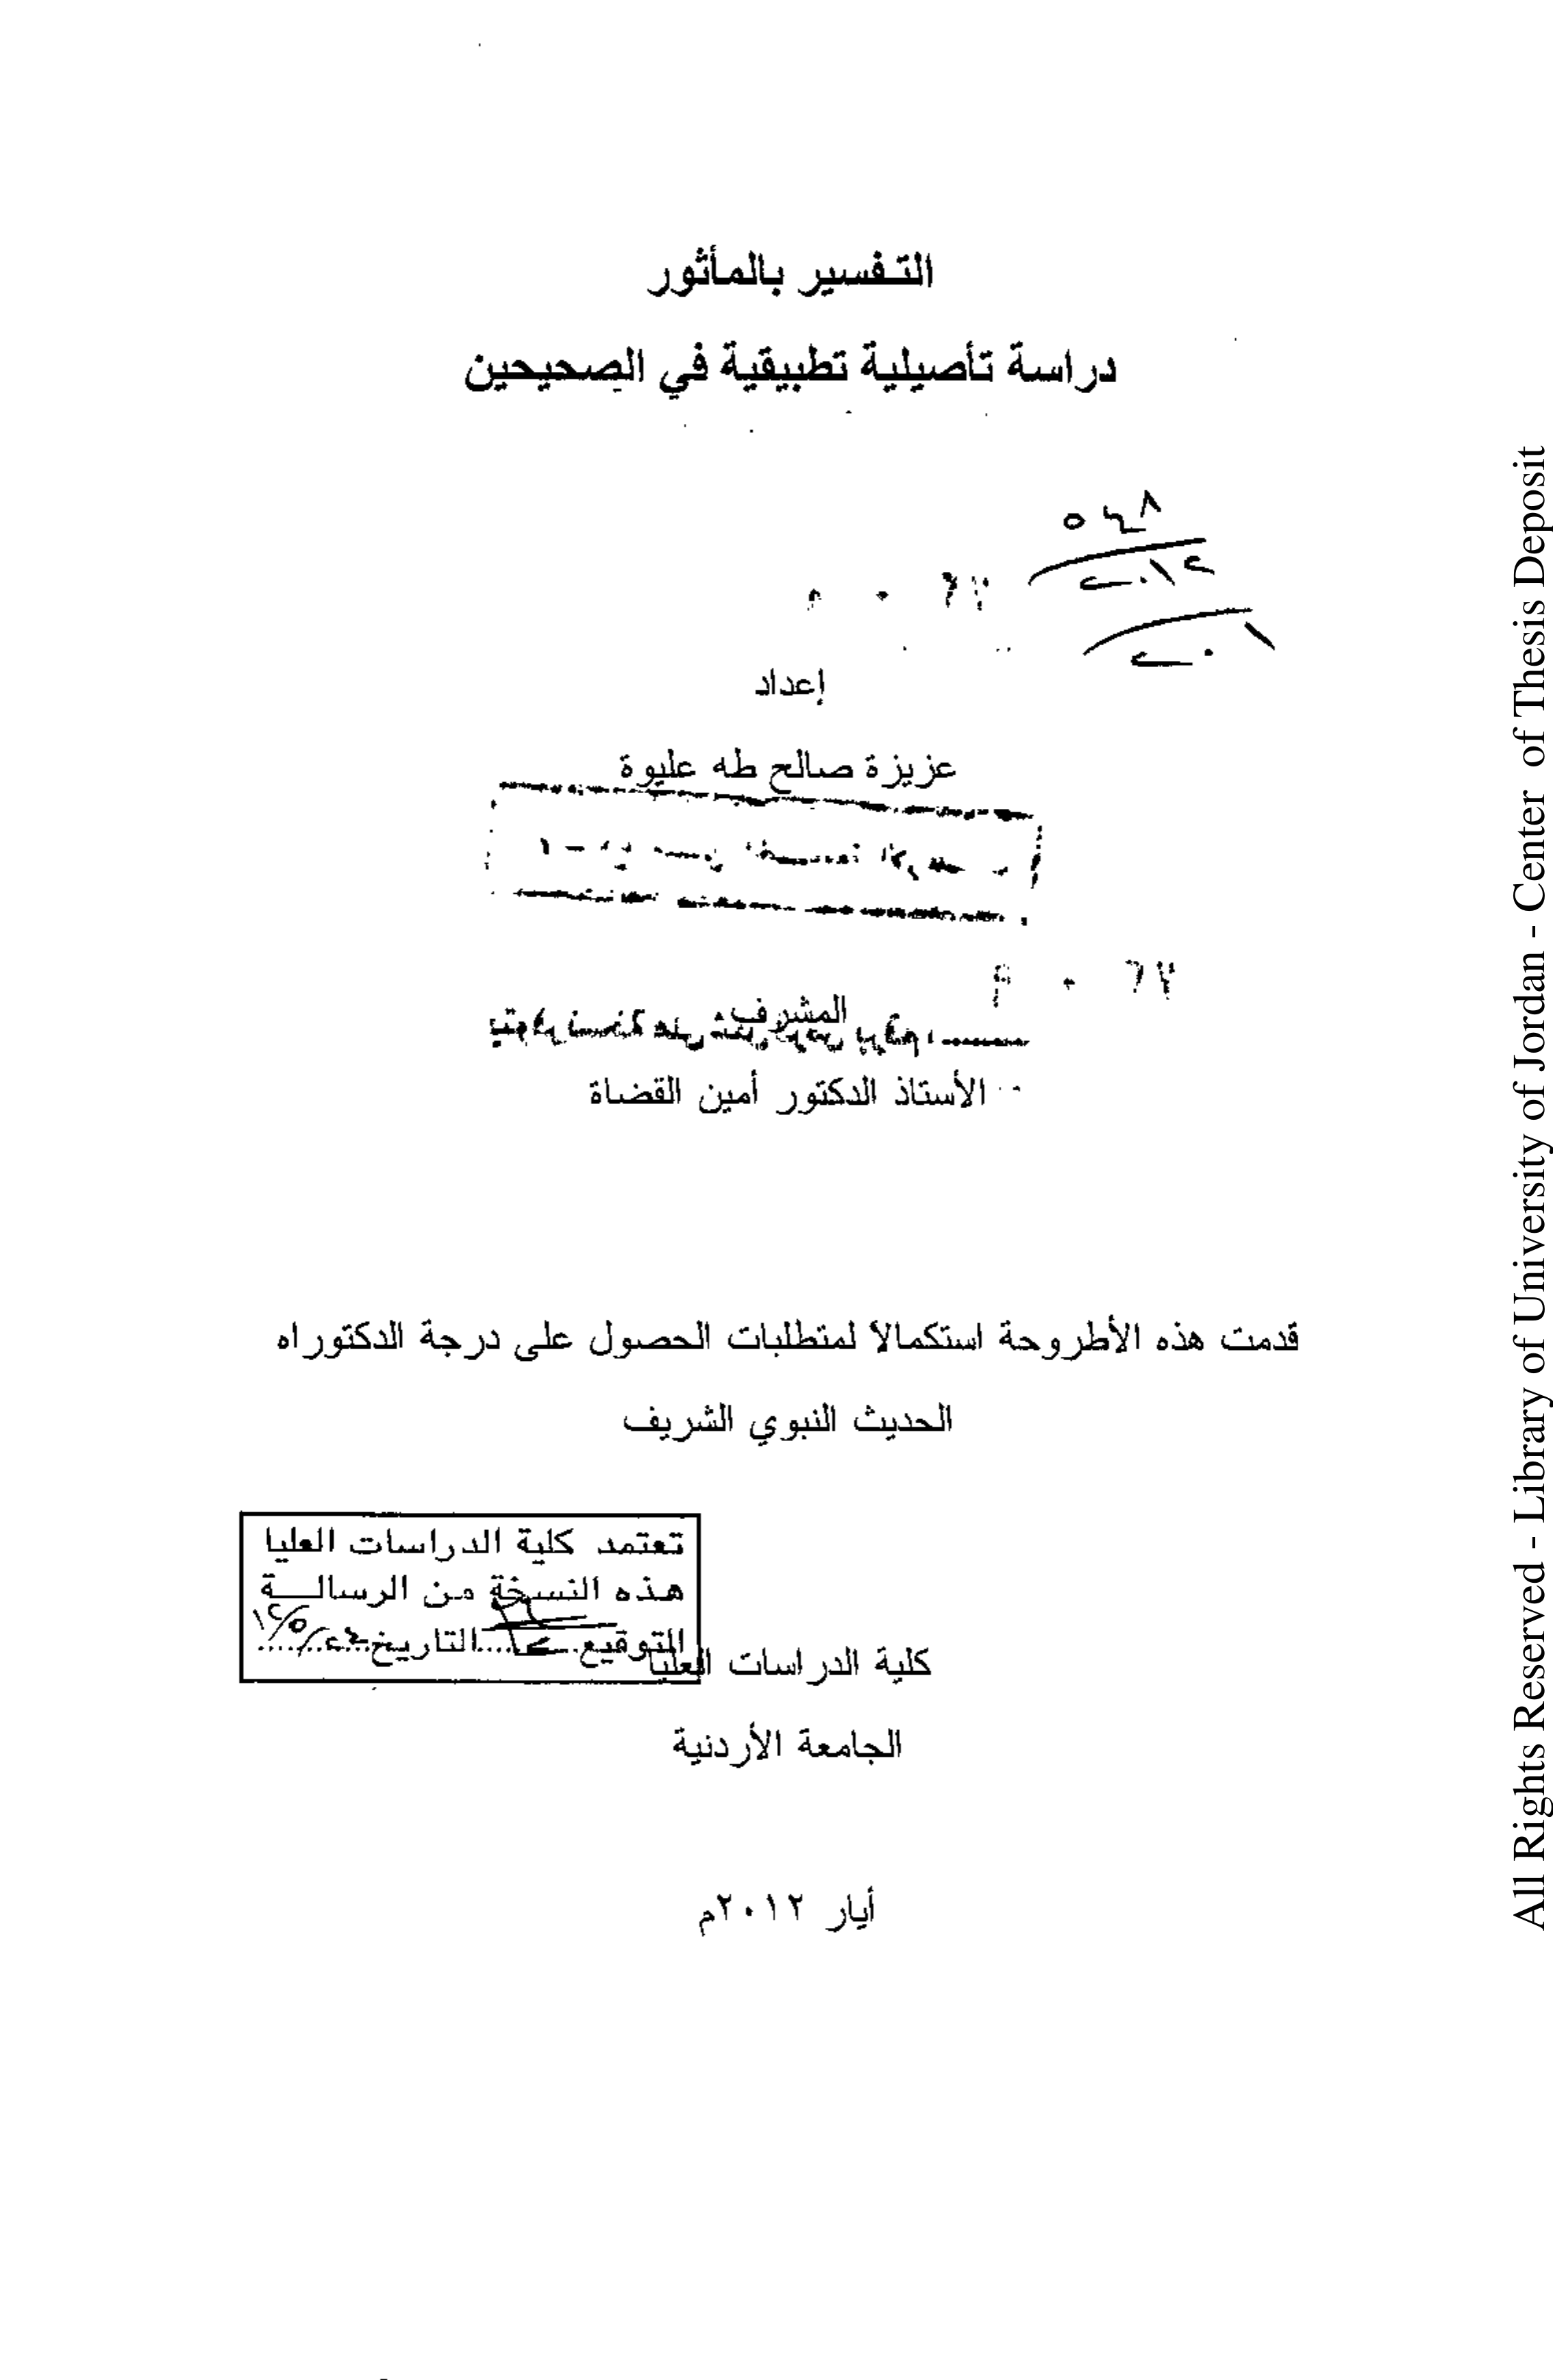 التفسير بالمأثور
دراسة تأصيلية تطبيقية في الصحيحين
٥٤٨
٢٠١٢
٢٠١
إعداد
عزيزة صالح طه عليوة
المشرف
الأستاذ الدكتور أمين القضاة
قدمت هذه الأطروحة استكمالاً لمتطلبات الحصول على درجة الدكتوراه
الحديث النبوي الشريف
تعتمد كلية الدراسات العليا
هذه النسخة من الرسالـــة
التوقيع.........التاريخ ٢٤/٥/١٢
كلية الدراسات العليا
الجامعة الأردنية
أيار ٢٠١٢م
All Rights Reserved - Library of University of Jordan - Center of Thesis Deposit